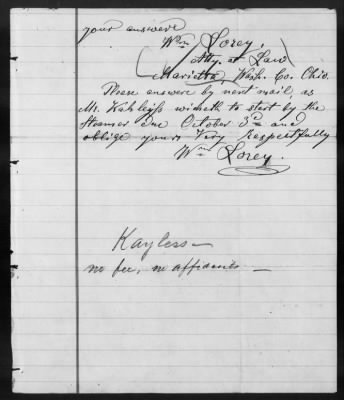 your answere
Wm Lorey,
Atty. at Law
Marietta, Wash. Co. Ohio.
Please answere by next mail, as
Mr. Kahleyss wisheth to start by the
Steamer due October 3d and
oblige yours Very Respectfully
Wm Lorey.
Kayless
no fee, no affidavits